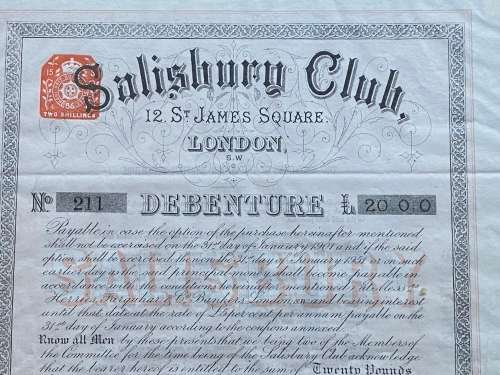 15
86
TWO SHILLINGS
Salisbury Club,
12, ST JAMES SQUARE.
LONDON,
S.W
No 211 DEBENTURE £ 20.0.0
Payable in case the option of the purchase hereinafter mentioned
shall not be exercised on the 31st day of January 1901 and if the said
option shall be exercised then on the 31st day of January 1931 or on such
earlier day as the said principal money shall become payable in
accordance with the conditions herein mentioned at Messrs
Herries, Farquhar & Co Bankers London, and bearing interest
until that date at the rate of per cent per annum, payable on the
31st day of January according to the coupons annexed.
Know all Men by these presents that we being two of the Members of
the Committee for the time being of the Salisbury Club acknowledge
that the bearer hereof is entitled to the sum of Twenty Pounds